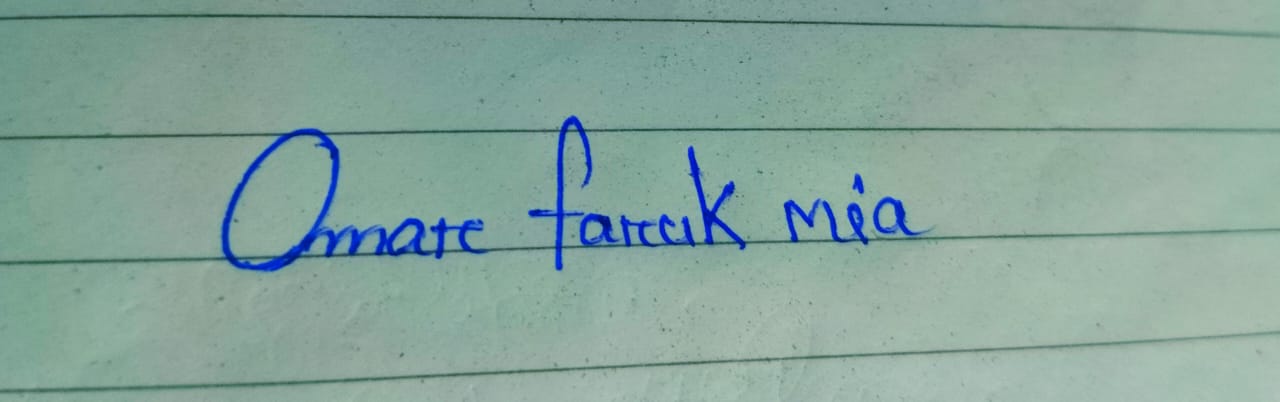 Omar faruk mia